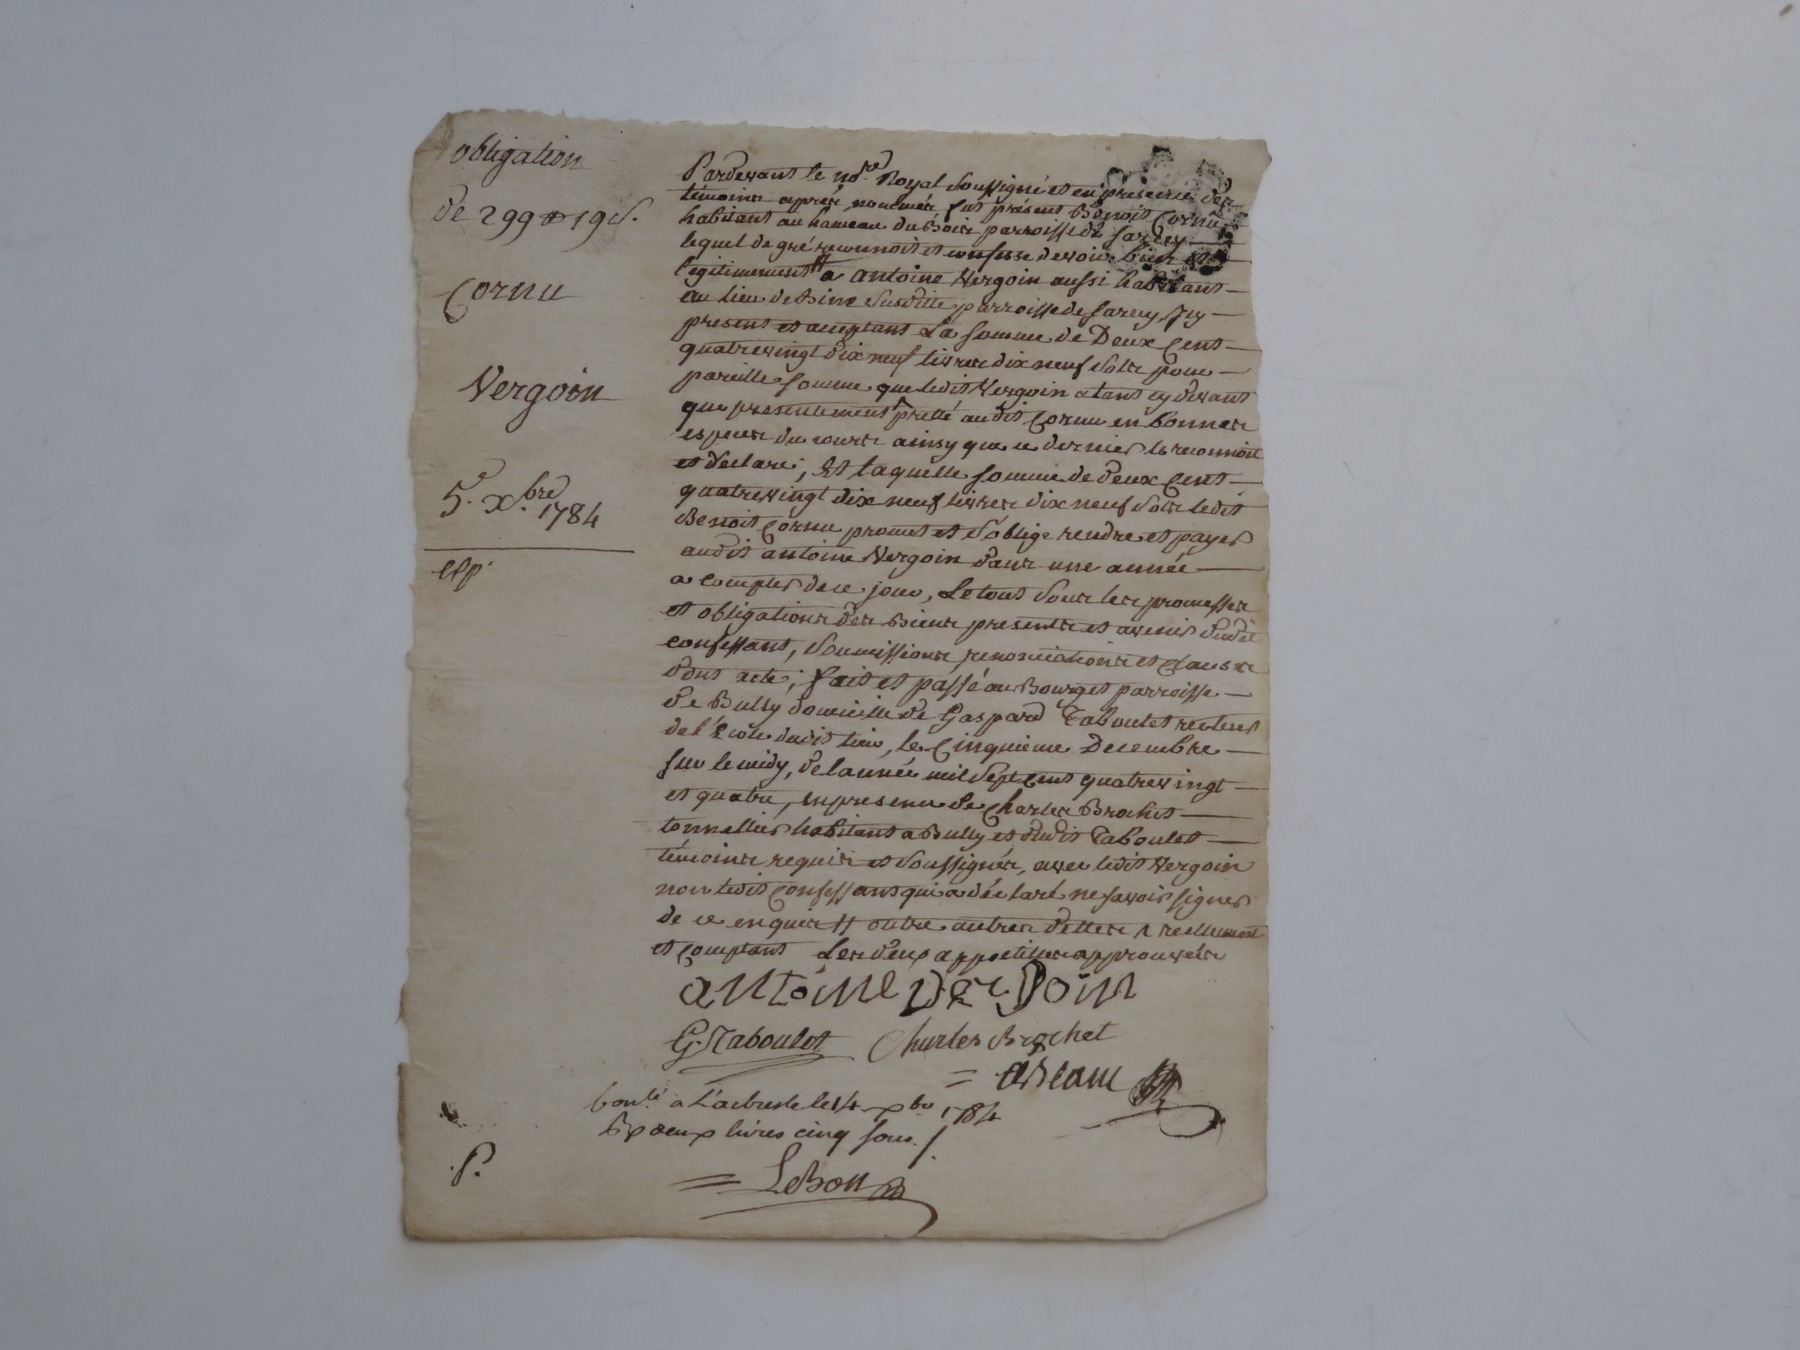 obligation
de 299 ₶ 19 s.
Cornu
Vergoin
5.e Xbre. 1784
exp.
Pardevant le no.re Royal soussigné et en presence des
témoins après nommés fut présent Benoit Cornu
habitant au hameau du Bois parroisse de Sarcey
lequel de gré reconnoit et confesse devoir bien et
legitimement // a antoine Vergoin aussi habitant
au lieu de susditte parroisse de Sarcey, icy
present et acceptant La somme de Deux Cent
quatrevingt dix neuf livres dix neuf sols pour
pareille somme que ledit Vergoin a tant cy devant
que presentement ^ pretté audit Cornu en bonnes
especes du cours ainsy que ce dernier le reconnoit
et déclare; Et laquelle somme de deux Cent
quatrevingt dix neuf livres dix neuf sols ledit
Benoit Cornu promet et s'oblige rendre et payer
audit antoine Vergoin dans une année
a compter de ce jour, Le tout sous les promesses
et obligations des Biens presents et avenir dudit
confessant, soumissions renonciations et Clauses
dont acte; fait et passé au Bourg et parroisse
de Bully domicille de Gaspard Taboulet recteur
de l'école dudit lieu, le Cinquieme Decembre
sur le midy, de l'année mil sept cent quatrevingt
et quatre, en presence de Charles Brochet
tonnellier habitant a Bully et dudit Taboulet
témoins requis et soussignés, avec ledit Vergoin
non ledit Confessant qui a déclaré ne savoir signer
de ce enquis // outre autres dettes ^ reellement
et comptant Les deux appostilles approuvées
antoine Vergoin
G. Taboulet Charles Brochet
=
Con.lé a L'arbresle le 14 xbre 1784
R. deux livres cinq sous.
= LeBon
P.